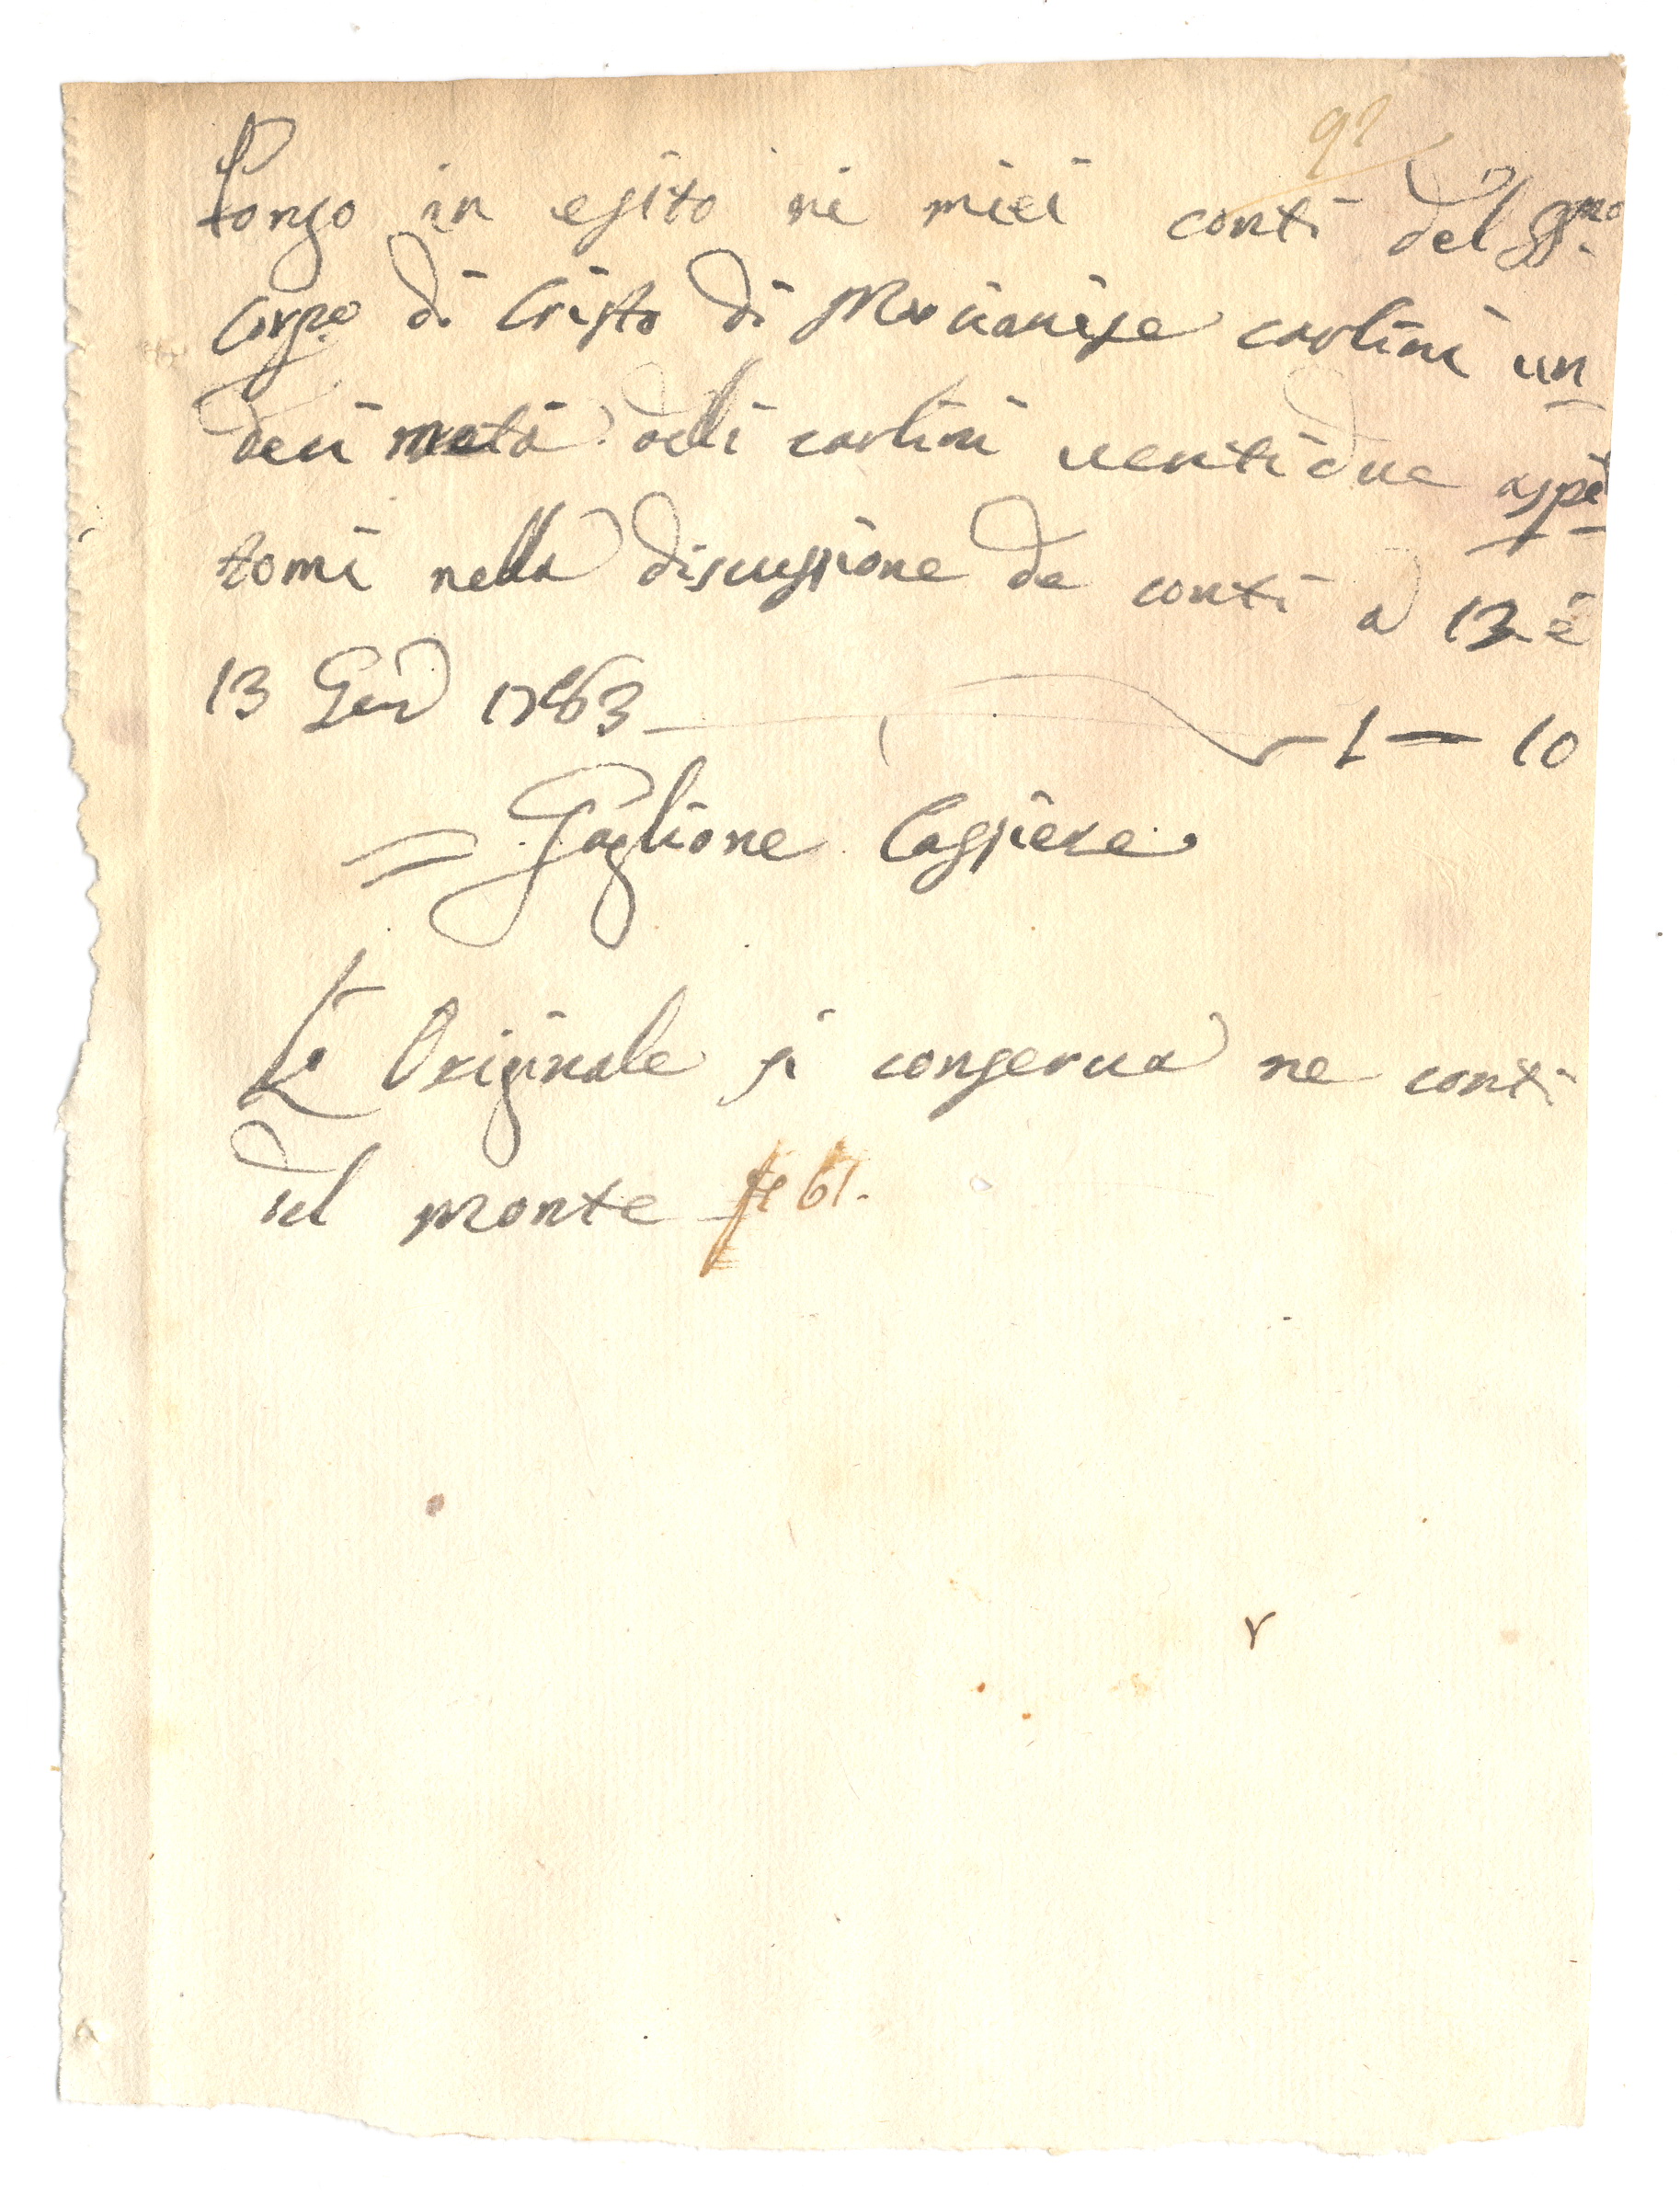 92
Pongo in esito ne miei conti del SSmo
Corpo di Cristo di Marcianise carlini un
deci metà delli carlini ventidue aspet
tomi nella discussione de conti a 12 e
13 Gen 1763 1 — 10
= Gaglione Cassiere
L'Originale si conserva ne conti
del monte fo 61.